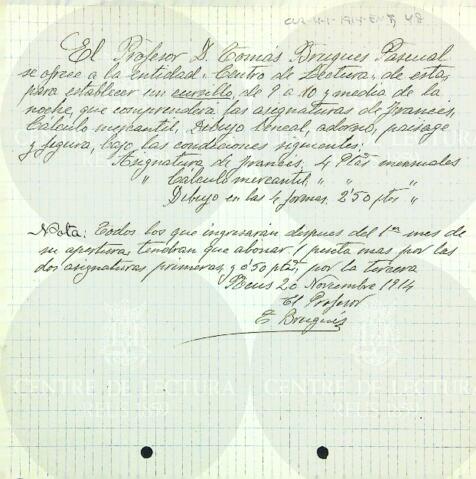 El Profesor D. Tomás Brugues Pascual
se ofrece a la entidad "Centro de Lectura" de esta,
para establecer un cursillo, de 9 a 10 y media de la
noche, que comprenderá las asignaturas de Francés,
Cálculo mercantil, Dibujo lineal, adorno, paisage
y figura, bajo las condiciones siguientes:
Asignatura de Francés, 4 Ptas mensuales
" Cálculo mercantil, " "
Dibujo en las 4 formas. 2'50 ptas "
Nota: Todos los que ingresaran despues del 1er mes de
su apertura, tendran que abonar, 1 peseta mas por las
dos asignaturas primeras, y 0'50 ptas, por la tercera
Reus 20 Noviembre 1914
El Profesor
T. Brugués
CENTRE DE LECTURA
REUS 1859
CENTRE DE LECTURA
REUS 1859